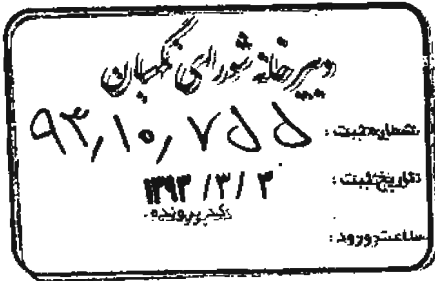 دبیرخانه شورای نگهبان
شماره ثبت : ۹۳/۱۰/۷۵۵
تاریخ ثبت : ۱۳۹۳/۳/۳
کد پرونده :
ساعت ورود :